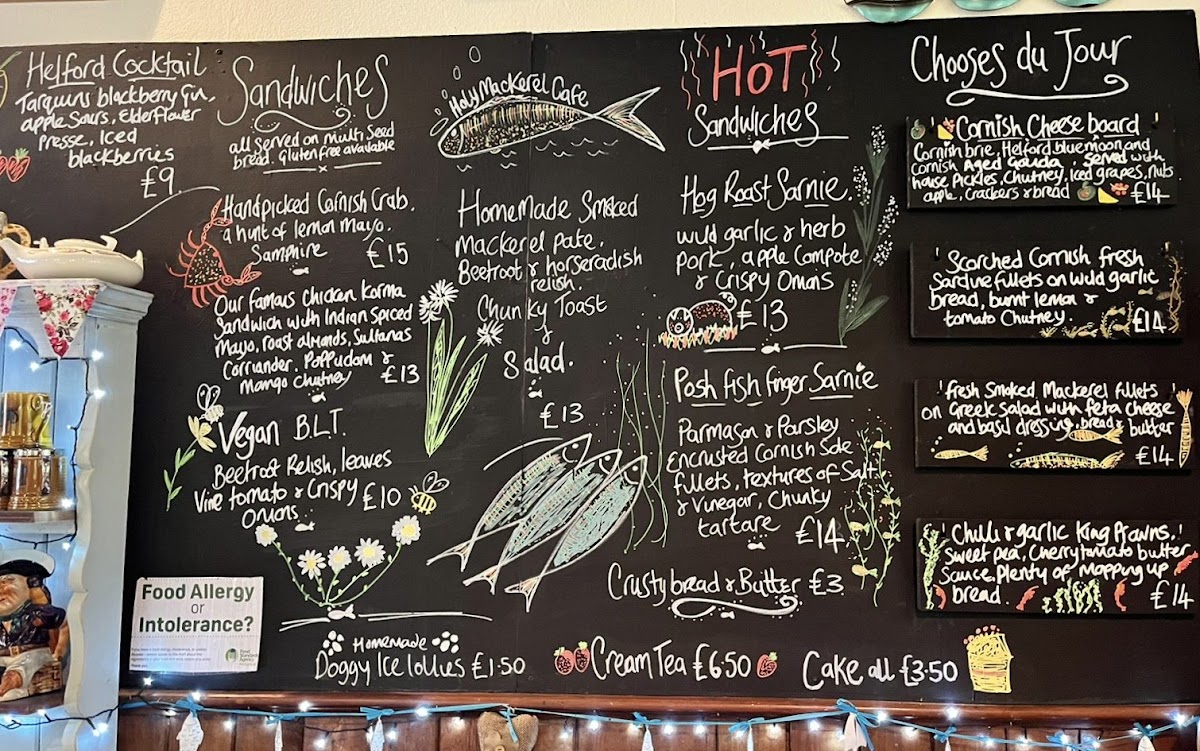 Helford Cocktail
Tarquins blackberry Gin,
apple Sours, Elderflower
Presse, Iced
blackberries
£9
Sandwiches
all served on multi seed
bread. Gluten free available
Handpicked Cornish Crab.
a hint of lemon Mayo.
Samphire £15
Our famous Chicken Korma
Sandwich with Indian Spiced
Mayo, roast almonds, Sultanas
Corriander, Poppudom &
Mango Chutney £13
Vegan B.L.T.
Beetroot Relish, leaves
Vine tomato & Crispy £10
Onions
Holy Mackerel Cafe
HomeMade Smoked
Mackerel Pate,
Beetroot & horseradish
relish.
Chunky Toast
&
Salad.
£13
HOT
Sandwiches
Hog Roast Sarnie.
Wild garlic & herb
pork, apple Compote
& Crispy Onions
£13
Posh fish finger Sarnie
Parmasan & Parsley
Encrusted Cornish Sole
fillets, textures of Salt
& Vinegar, Chunky
tartare £14
Crusty bread & Butter £3.
Chooses du Jour
Cornish Cheese board
Cornish brie, Helford blue moon and
Cornish Aged Gouda. Served with
house Pickles, Chutney, iced grapes, nuts
apple, Crackers & bread £14
Scorched Cornish fresh
Sardine fillets on wild garlic
bread, burnt lemon &
tomato Chutney. £14
Fresh Smoked Mackerel fillets
on Greek Salad with feta cheese
and basil dressing, bread & butter
£14
Chilli & garlic King Prawns,
Sweet pea, Cherry tomato butter
Sauce. Plenty of Mopping up
bread. £14
Food Allergy
or
Intolerance?
Food
Standards
Agency
Homemade
Doggy Ice lollies £1.50
Cream Tea £6.50
Cake all £3.50